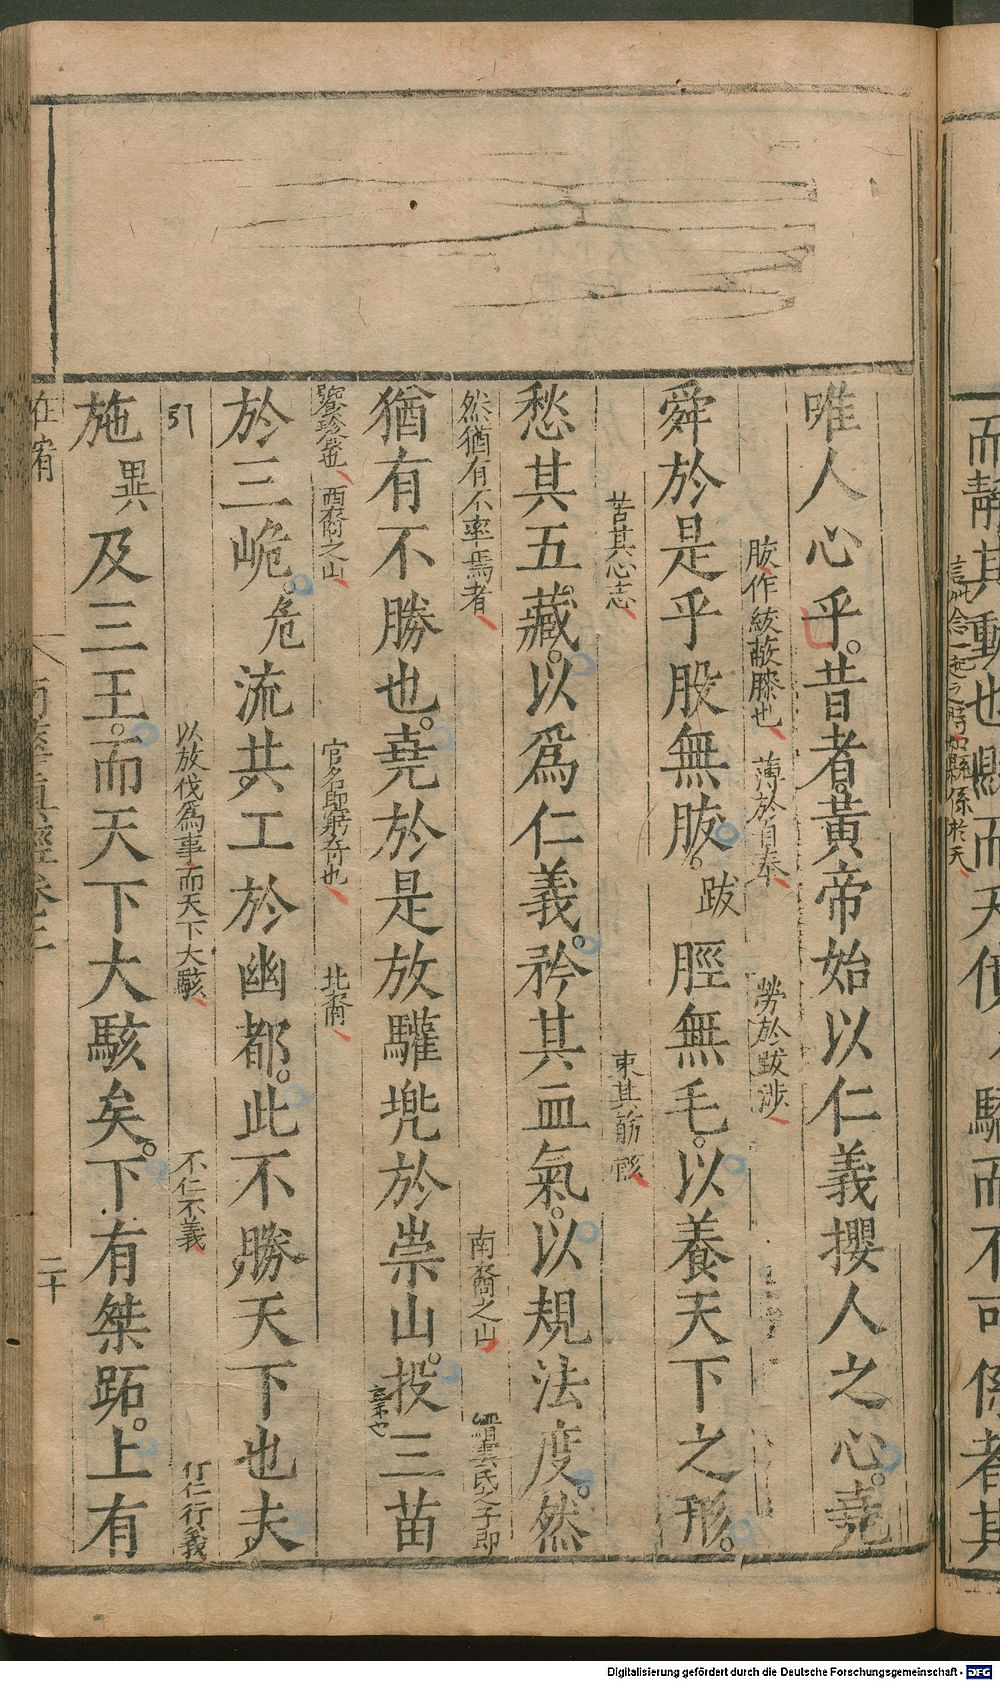 而靜其動也縣而天僨驕而不可係者其
言此念一起之時如縣係於天
唯人心乎昔者黃帝始以仁義攖人之心堯
胈作紱蔽膝也 薄於自奉 勞於跋涉
舜於是乎股無胈。跋脛無毛。以養天下之形。
苦其心志 束其筋骸
愁其五藏。以爲仁義。矜其血氣。以規法度。然
然猶有不率焉者 南裔之山 縉雲氏之子即
猶有不勝也。堯於是放驩兜於崇山。投三苗
饕餮也 西裔之山 官名即窮奇也 北裔
於三峗。危流共工於幽都。此不勝天下也夫
引 以放伐爲事而天下大駭 不仁不義 行仁行義
施異及三王。而天下大駭矣。下有桀跖。上有
在宥 南華眞經卷三 二十
Digitalisierung gefördert durch die Deutsche Forschungsgemeinschaft - DFG